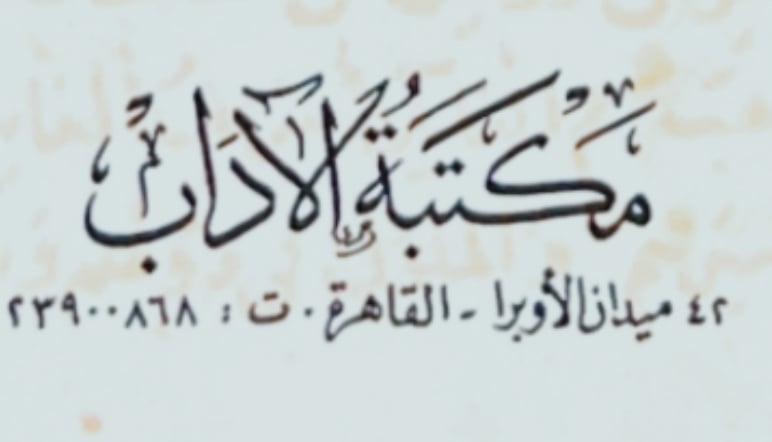 مكتبة الآداب
٤٢ ميدان الأوبرا - القاهرة . ت : ٢٣٩٠٠٨٦٨